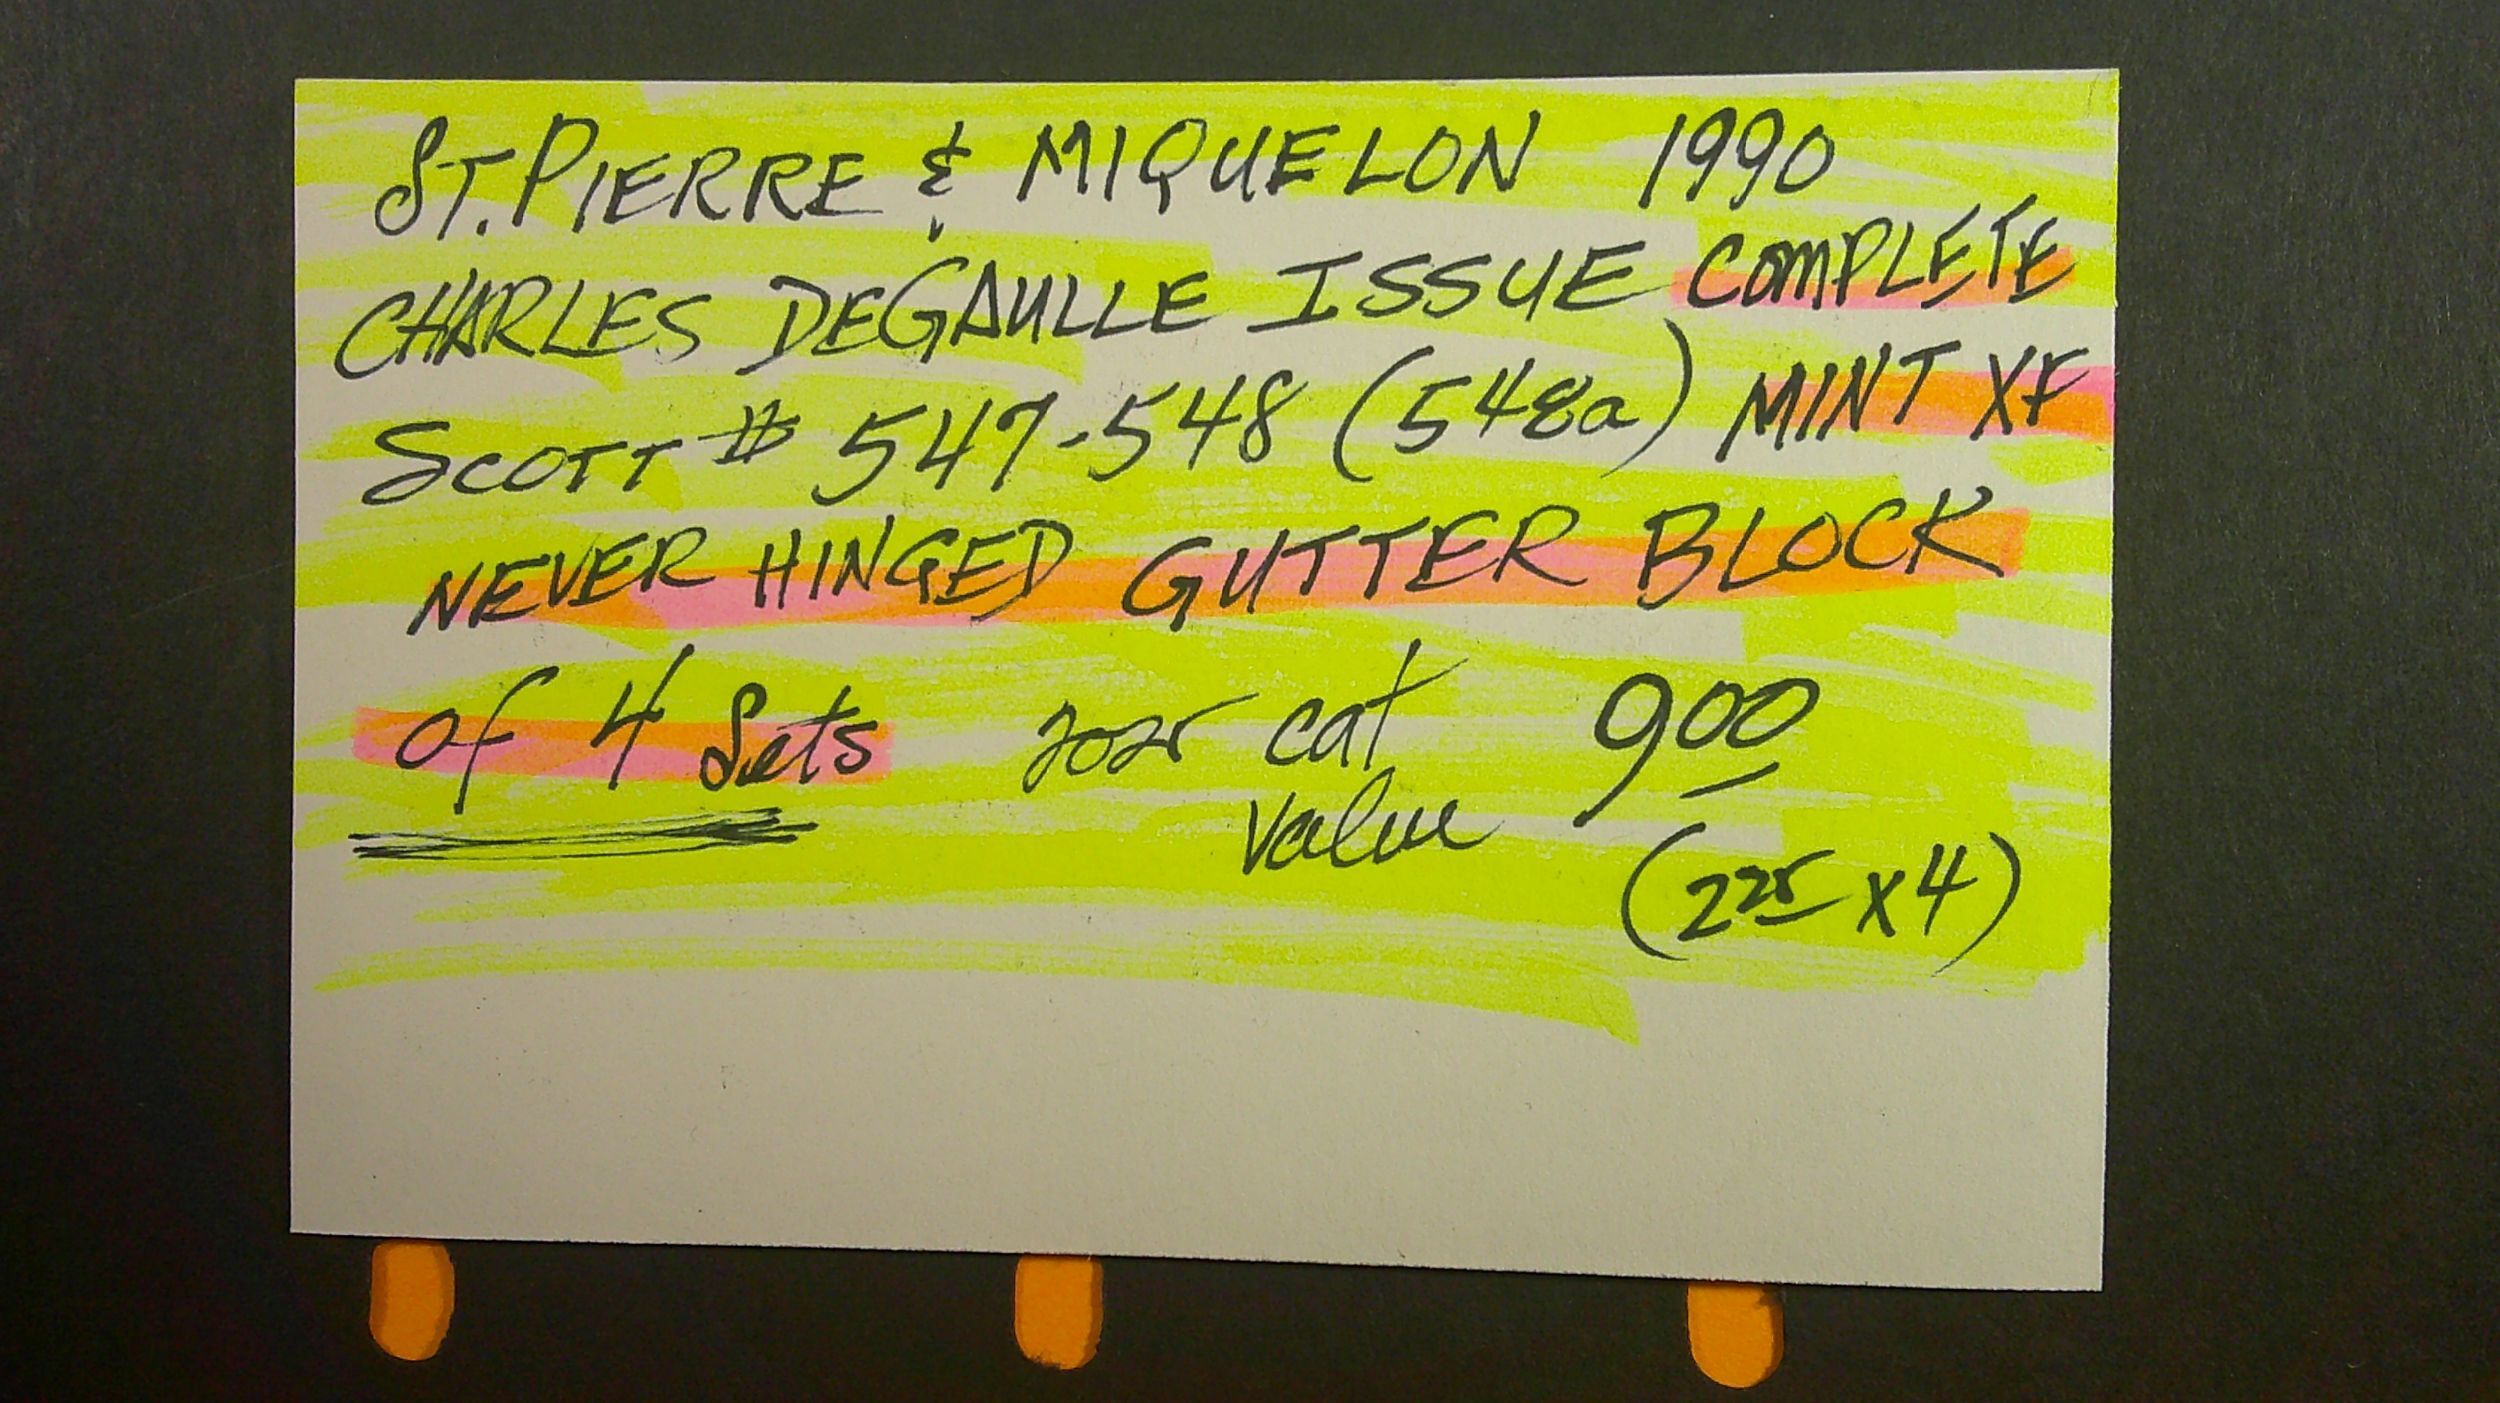 ST. PIERRE & MIQUELON 1990
CHARLES DEGAULLE ISSUE COMPLETE
SCOTT # 547-548 (548a) MINT XF
NEVER HINGED GUTTER BLOCK
of 4 Sets 2025 cat value 900
(225 x 4)